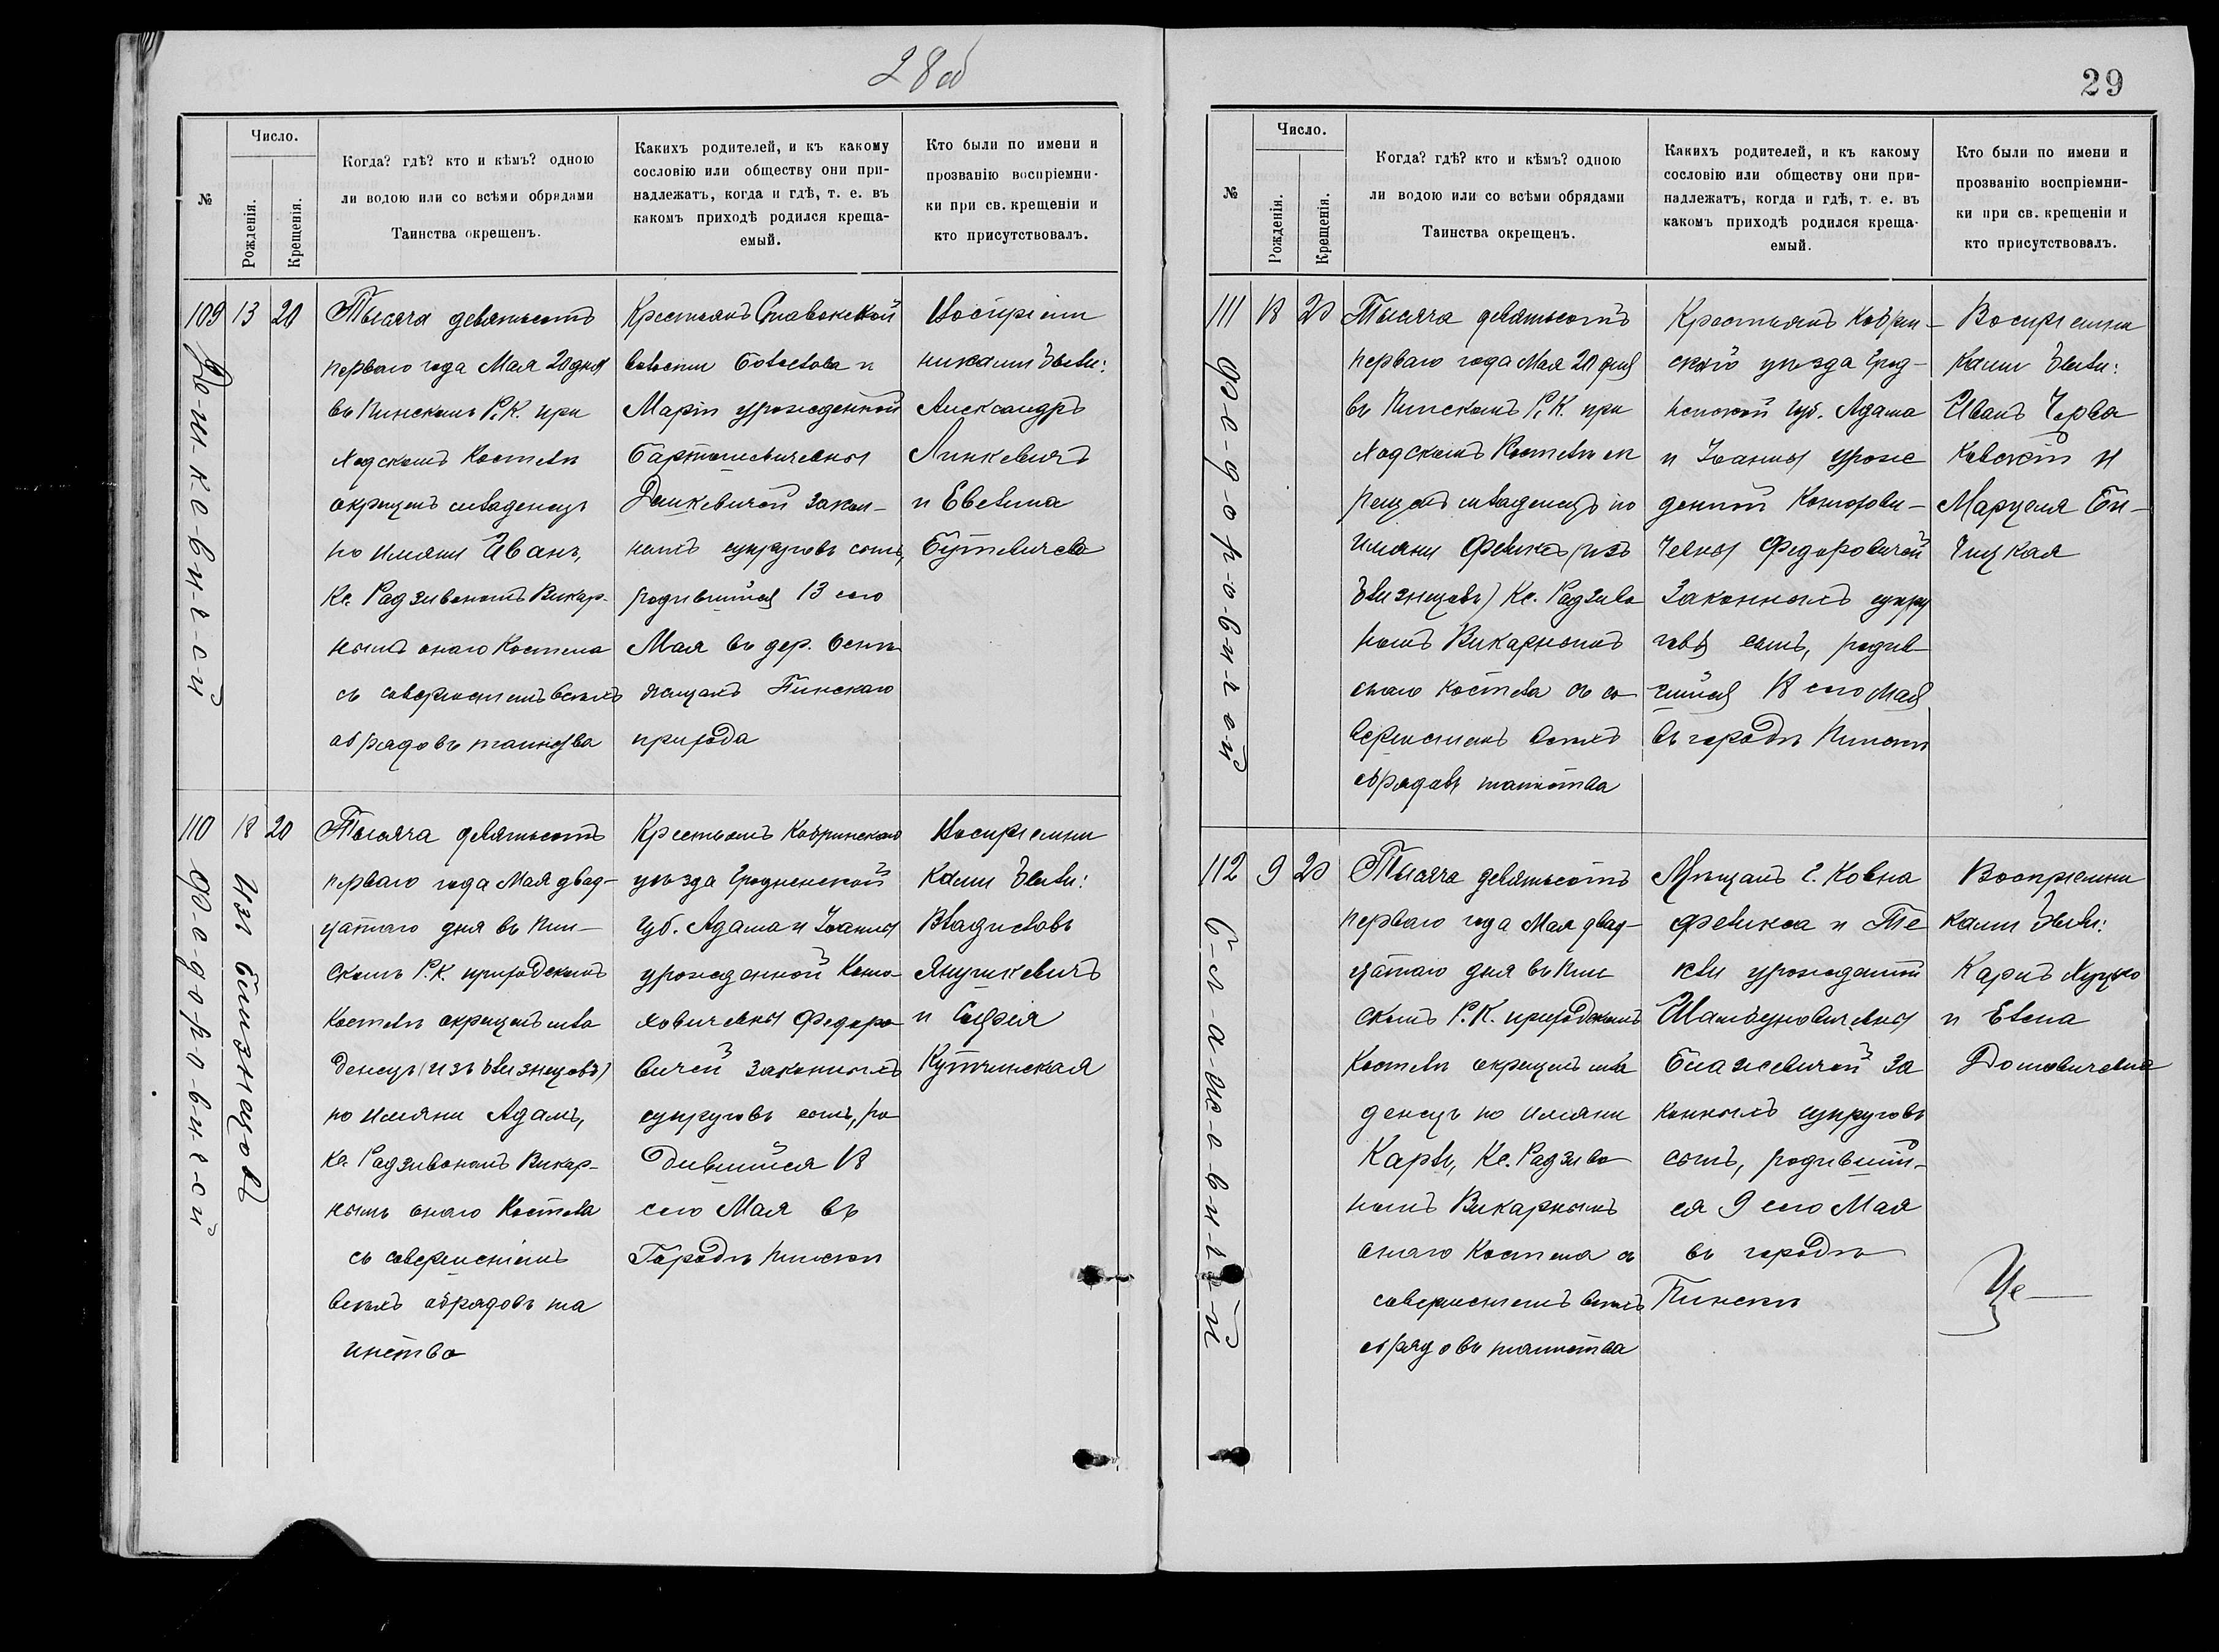 28 об
№
Число.
Рожденія.
Крещенія.
Когда? гдѣ? кто и кѣмъ? одною
ли водою или со всѣми обрядами
Таинства окрещенъ.
Какихъ родителей, и къ какому
сословію или обществу они при-
надлежатъ, когда и гдѣ, т. е. въ
какомъ приходѣ родился креща-
емый.
Кто были по имени и
прозванію воспріемни-
ки при св. крещеніи и
кто присутствовалъ.
109 13 20
Тысяча девятьсотъ
перваго года Мая 20 дня
въ Пинскомъ Р. К. при
ходскомъ Костелѣ
окрещенъ младенецъ
по имяни Иванъ,
Кс. Радзивономъ Викар-
нымъ онаго Костела
съ совершеніемъ всѣхъ
обрядовъ таинства
Крестьянъ Ставокской
волости Болеслава и
Маріи урожденной
Бартошевичевны
законныхъ супруговъ сынъ,
родившійся 13 сего
Мая въ дер.
Пинскаго
прихода
Воспріем
никами были:
Александръ
Линкевичъ
и Евелина
Бутевичева
110 18 20
Изъ близнецовъ
Ф-е-д-о-р-о-в-и-ч-е-й
Тысяча девятьсотъ
перваго года Мая двад-
цатаго дня въ Пин-
скомъ Р. К. приходскомъ
Костелѣ окрещенъ мла
денецъ (изъ близнецовъ)
по имяни Адамъ,
Кс. Радзивономъ Викар-
нымъ онаго Костела
съ совершеніемъ
всѣхъ обрядовъ та
инства
Крестьянъ Кобринскаго
уѣзда Гродненской
Губ. Адама и Іоанны
урожденной
Федоро
вичей законныхъ
супруговъ сынъ, ро
дившійся 18
сего Мая въ
Городѣ Пинскѣ
Воспріемни
ками были:
Владиславъ
Янушкевичъ
и Софія
Кутчинская
29
№
Число.
Рожденія.
Крещенія.
Когда? гдѣ? кто и кѣмъ? одною
ли водою или со всѣми обрядами
Таинства окрещенъ.
Какихъ родителей, и къ какому
сословію или обществу они при-
надлежатъ, когда и гдѣ, т. е. въ
какомъ приходѣ родился креща-
емый.
Кто были по имени и
прозванію воспріемни-
ки при св. крещеніи и
кто присутствовалъ.
111 18 20
Ф-е-д-о-р-о-в-и-ч-е-й
Тысяча девятьсотъ
перваго года Мая 20 дня
въ Пинскомъ Р. К. при
ходскомъ Костелѣ ок
рещенъ младенецъ по
имяни Феликсъ (изъ
близнецовъ) Кс. Радзиво
номъ Викарнымъ
онаго костела съ со
вершеніемъ всѣхъ
обрядовъ таинства
Крестьянъ Кобрин-
скаго уѣзда Грод-
ненской Губ. Адама
и Іоанны урож
денной
Федоровичей
Законныхъ супру
говъ сынъ, родив
шійся 18 сего Мая
въ городѣ Пинскѣ
Воспріемни
ками были:
Иванъ Черва
ковскій и
Марцеля
112 9 20
Б-л-а-ж-е-в-и-ч-е-й
Тысяча девятьсотъ
перваго года Мая двад-
цатаго дня въ Пин
скомъ Р. К. приходскомъ
Костелѣ окрещенъ мла
денецъ по имяни
Карлъ, Кс. Радзиво
номъ Викарнымъ
онаго Костела съ
совершеніемъ всѣхъ
обрядовъ таинства
Мѣщанъ г. Ковна
Феликса и Те
кли урожденной
Блажевичей за
конныхъ супруговъ
сынъ, родившій-
ся 9 сего Мая
въ городѣ
Пинскѣ
Воспріемни
ками были:
Карлъ
и Елена